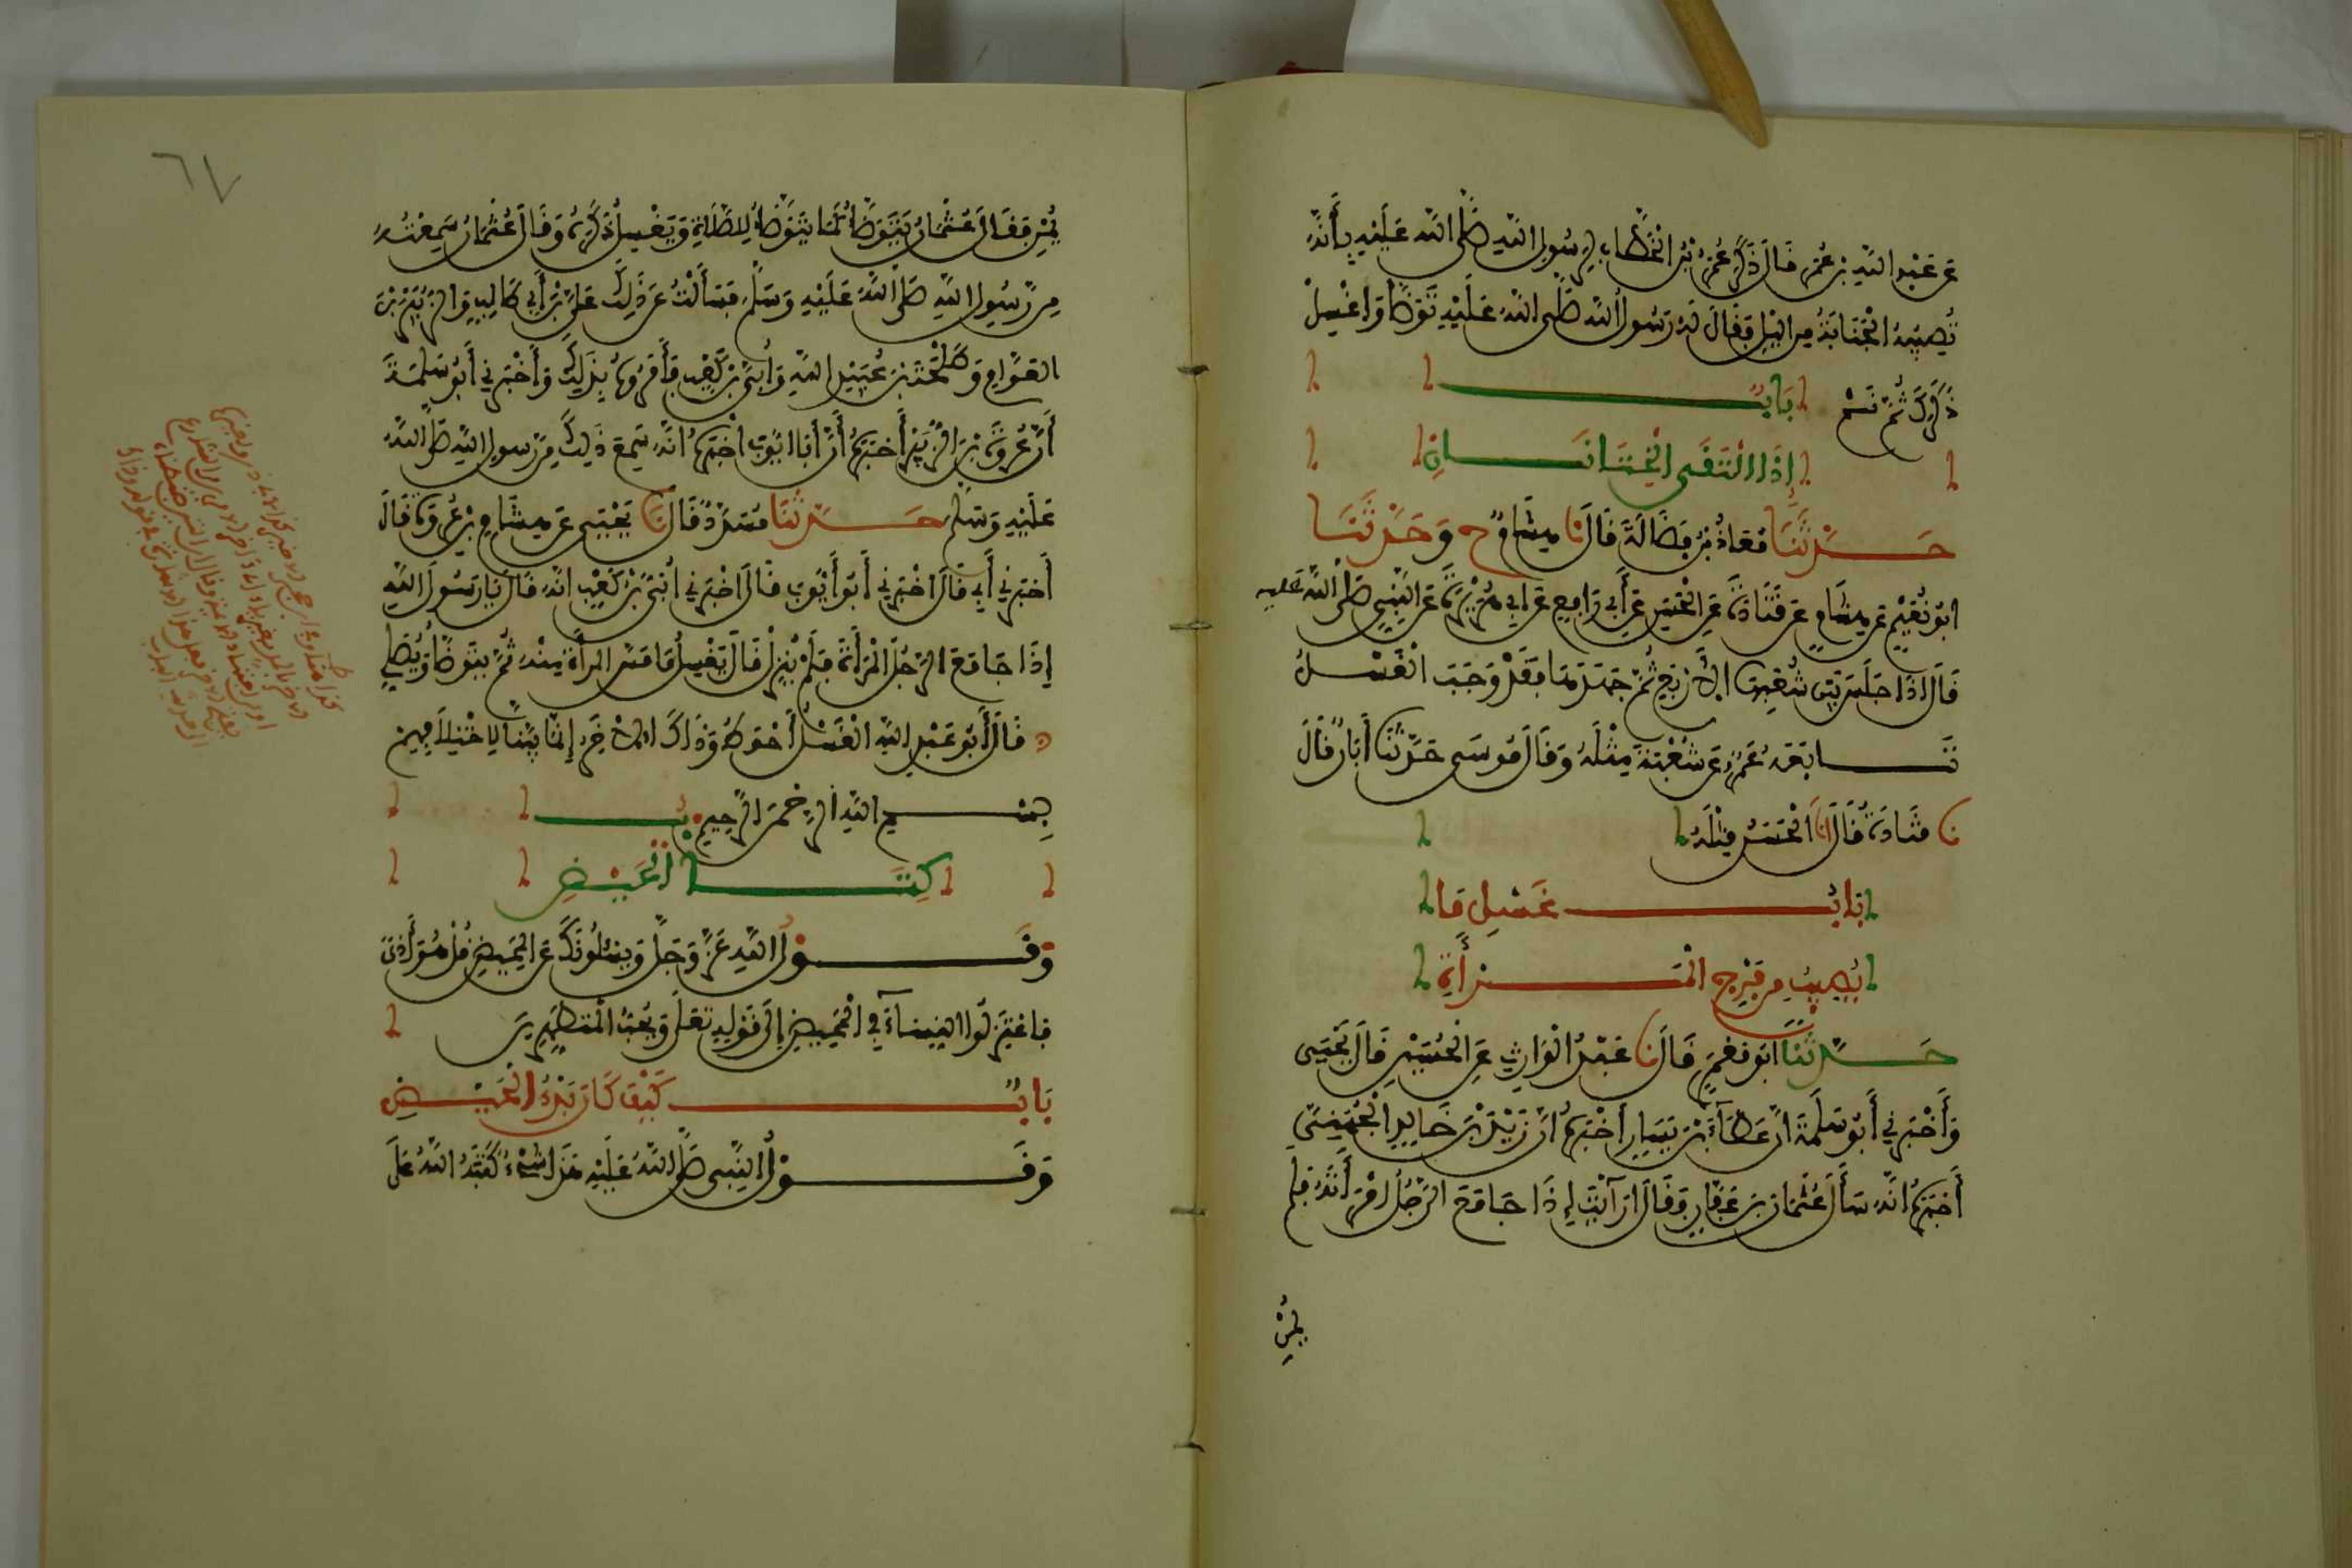 عَنْ عَبْدِ اللَّهِ بْنِ عُمَرَ قَالَ ذَكَرَ عُمَرُ بْنُ الْخَطَّابِ لِرَسُولِ اللَّهِ صَلَّى اللَّهُ عَلَيْهِ بِأَنَّهُ
تُصِيبُهُ الْجَنَابَةُ مِنَ اللَّيْلِ فَقَالَ لَهُ رَسُولُ اللَّهِ صَلَّى اللَّهُ عَلَيْهِ تَوَضَّأْ وَاغْسِلْ
ذَكَرَكَ ثُمَّ نَمْ بَابٌ
إِذَا الْتَقَى الْخِتَانَانِ
حَدَّثَنَا مُعَاذُ بْنُ فَضَالَةَ قَالَ نَا هِشَامٌ ح وَحَدَّثَنَا
أَبُو نُعَيْمٍ عَنْ هِشَامٍ عَنْ قَتَادَةَ عَنِ الْحَسَنِ عَنْ أَبِي رَافِعٍ عَنْ أَبِي هُرَيْرَةَ عَنِ النَّبِيِّ صَلَّى اللَّهُ عَلَيْهِ
قَالَ إِذَا جَلَسَ بَيْنَ شُعَبِهَا الْأَرْبَعِ ثُمَّ جَهَدَهَا فَقَدْ وَجَبَ الْغُسْلُ
تَابَعَهُ عَمْرٌو عَنْ شُعْبَةَ مِثْلَهُ وَقَالَ مُوسَى حَدَّثَنَا أَبَانُ قَالَ
نَا قَتَادَةُ قَالَ أَنَا الْحَسَنُ مِثْلَهُ
بَابُ غَسْلِ مَا
يُصِيبُ مِنْ فَرْجِ الْمَرْأَةِ
حَدَّثَنَا أَبُو مَعْمَرٍ قَالَ نَا عَبْدُ الْوَارِثِ عَنِ الْحُسَيْنِ قَالَ يَحْيَى
وَأَخْبَرَنِي أَبُو سَلَمَةَ أَنَّ عَطَاءَ بْنَ يَسَارٍ أَخْبَرَهُ أَنَّ زَيْدَ بْنَ خَالِدٍ الْجُهَنِيَّ
أَخْبَرَهُ أَنَّهُ سَأَلَ عُثْمَانَ بْنَ عَفَّانَ فَقَالَ أَرَأَيْتَ إِذَا جَامَعَ الرَّجُلُ امْرَأَتَهُ فَلَمْ
يُمْنِ
٦٧
يُمْنِ فَقَالَ عُثْمَانُ يَتَوَضَّأُ كَمَا يَتَوَضَّأُ لِلصَّلَاةِ وَيَغْسِلُ ذَكَرَهُ وَقَالَ عُثْمَانُ سَمِعْتُهُ
مِنْ رَسُولِ اللَّهِ صَلَّى اللَّهُ عَلَيْهِ وَسَلَّمَ فَسَأَلْتُ عَنْ ذَلِكَ عَلِيَّ بْنَ أَبِي طَالِبٍ وَالزُّبَيْرَ بْنَ
الْعَوَّامِ وَطَلْحَةَ بْنَ عُبَيْدِ اللَّهِ وَأُبَيَّ بْنَ كَعْبٍ فَأَمَرُوهُ بِذَلِكَ وَأَخْبَرَنِي أَبُو سَلَمَةَ
أَنَّ عُرْوَةَ بْنَ الزُّبَيْرِ أَخْبَرَهُ أَنَّ أَبَا أَيُّوبَ أَخْبَرَهُ أَنَّهُ سَمِعَ ذَلِكَ مِنْ رَسُولِ اللَّهِ صَلَّى اللَّهُ
عَلَيْهِ وَسَلَّمَ حَدَّثَنَا مُسَدَّدٌ قَالَ نَا يَحْيَى عَنْ هِشَامِ بْنِ عُرْوَةَ قَالَ
أَخْبَرَنِي أَبِي قَالَ أَخْبَرَنِي أَبُو أَيُّوبَ قَالَ أَخْبَرَنِي أُبَيُّ بْنُ كَعْبٍ أَنَّهُ قَالَ يَا رَسُولَ اللَّهِ
إِذَا جَامَعَ الرَّجُلُ الْمَرْأَةَ فَلَمْ يُنْزِلْ قَالَ يَغْسِلُ مَا مَسَّ الْمَرْأَةَ مِنْهُ ثُمَّ يَتَوَضَّأُ وَيُصَلِّي
قَالَ أَبُو عَبْدِ اللَّهِ الْغُسْلُ أَحْوَطُ وَذَاكَ الْآخِرُ إِنَّمَا بَيَّنَّا لِاخْتِلَافِهِمْ
بِسْمِ اللَّهِ الرَّحْمَنِ الرَّحِيمِ
كِتَابُ الْحَيْضِ
وَقَوْلُ اللَّهِ عَزَّ وَجَلَّ وَيَسْأَلُونَكَ عَنِ الْمَحِيضِ قُلْ هُوَ أَذًى
فَاعْتَزِلُوا النِّسَاءَ فِي الْمَحِيضِ إِلَى قَوْلِهِ تَعَالَى وَيُحِبُّ الْمُتَطَهِّرِينَ
بَابُ كَيْفَ كَانَ بَدْءُ الْحَيْضِ
وَقَوْلُ النَّبِيِّ صَلَّى اللَّهُ عَلَيْهِ هَذَا شَيْءٌ كَتَبَهُ اللَّهُ عَلَى